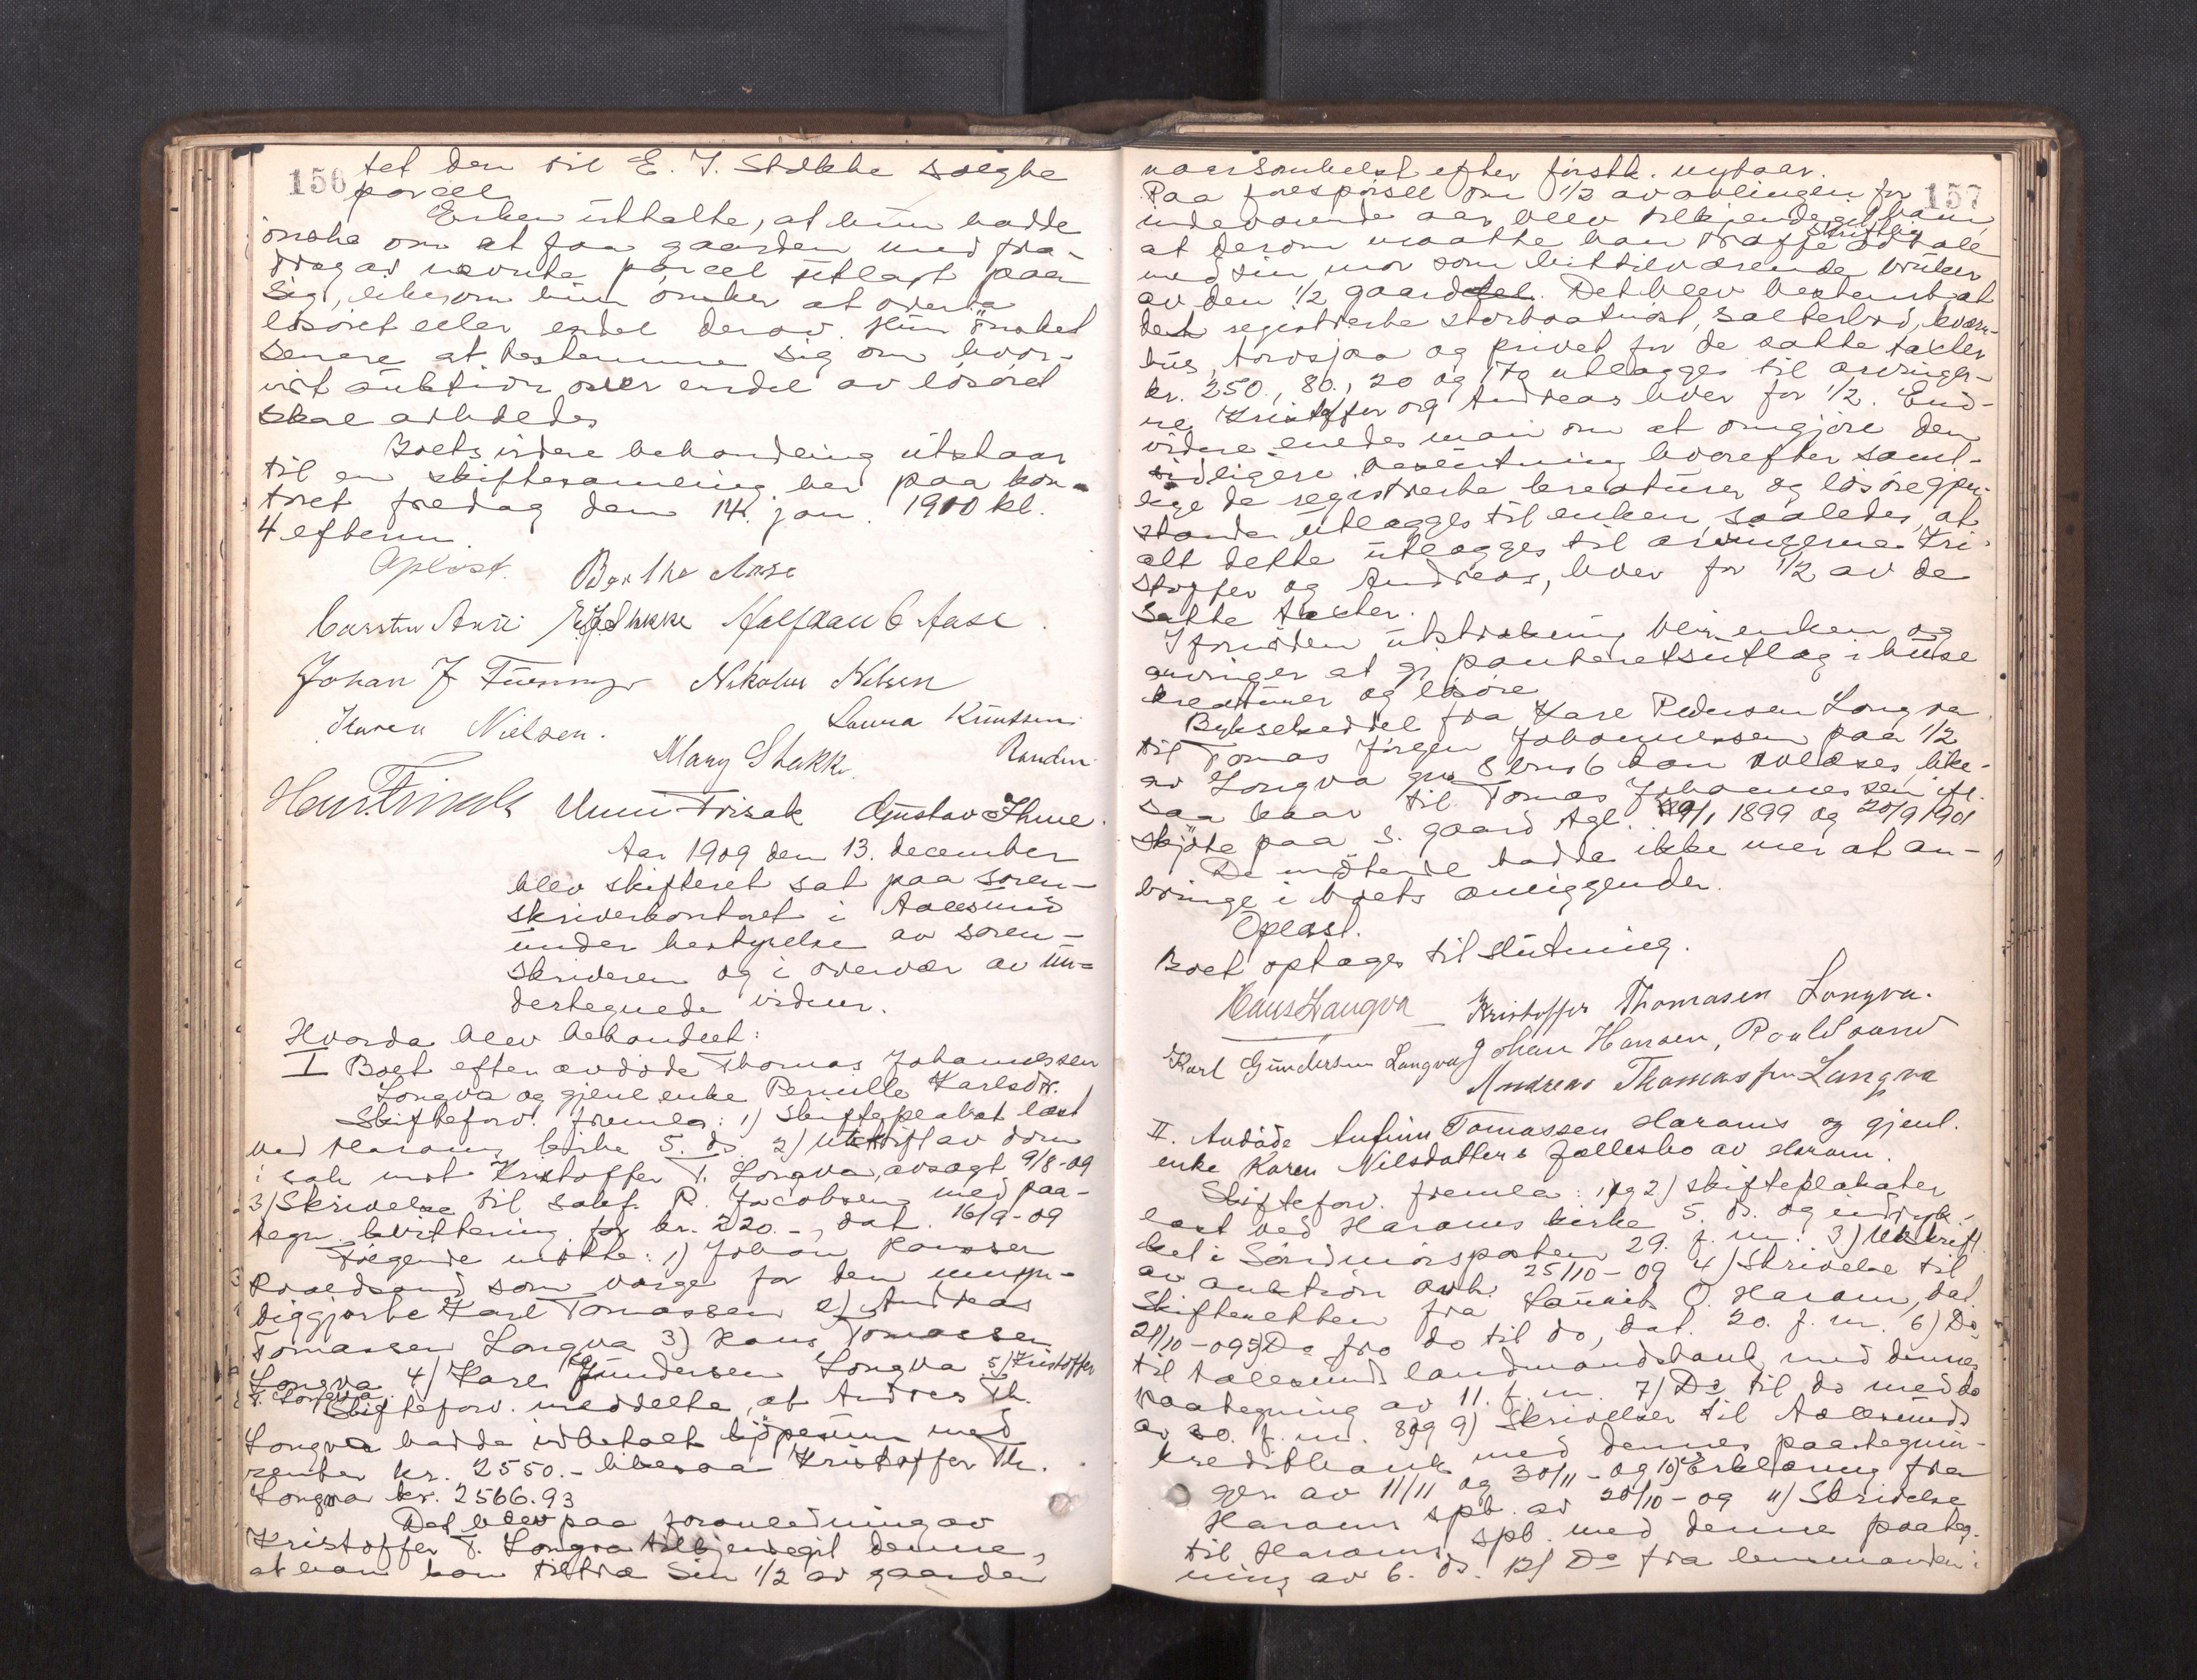 156
tet den til E. J. Stokke solgte
parcel
Enken uttalte, at hun hadde
ønske om at faa gaarden med fra-
drag av nævnte parcel utlagt paa
sig, likesom hun ønsker at overta
løsøret eller endel derav. Hun ønsket
senere at bestemme sig om hvor-
vidt auktion over endel av løsøret
skal avholdes
Boets videre behandling utstaar
til en skiftesamling her paa kon-
toret fredag den 14. jan. 1910 kl.
4 efterm
Oplæst. Berthe Aase
Carsten Aase E J Stokke Halfdan C Aase
Johan J Nikolai Nilsen
Karen Nielsen. Laura Knutsen
Mary Stokke Randi
Unni Frisak Gustav Thue.
Aar 1909 den 13. december
blev skifteret sat paa soren-
skriverkontoret i Aalesund
under bestyrelse av soren-
skriveren og i overvær av un-
dertegnede vidner.
Hvorda blev behandlet:
I Boet efter avdøde Thomas Johannessen
Longva og gjenl. enke Pernille Karlsdtr.
Skifteforv. fremla: 1) Skifteplakat læst
ved Harams kirke 5. ds. 2) Utskrift av dom
i sak mot Kristoffer T. Longva, avsagt 9/8-09
3) Skrivelse til sakf. P. Jacobsen med paa-
tegn. kvittering for kr. 220.-, dat. 16/9-09
Følgende møtte: 1) Johan Hanssen
Roaldsand som verge for den umyn-
diggjorte Karl Tomassen 2) Andreas
Tomassen Longva 3) Hans Tomassen
Longva 4) Karl Gundersen Longva 5) Kristoffer
T. Longva.
Skifteforv. meddelte, at Andreas Th.
Longva hadde indbetalt kjøpesum med
renter kr. 2550.- likesaa Kristoffer Th.
Longva kr. 2566.93
Det blev paa foranledning av
Kristoffer T. Longva tilkjendegit denne,
at han kan tiltræ sin 1/2 av gaarden
157
naarsomhelst efter førstk. nytaar.
Paa forespørsel om 1/2 av avlingen for
indeværende aar, blev tilkjendegit ham,
at derom maatte han træffe skriftlig avtale
med sin mor som hittilværende bruker
av den 1/2 gaarddel. Det blev bestemt at
det registrerte storbaatnøst, salterbod, kværn-
hus, torvsjaa og privet for de satte takster
kr. 250., 80., 20 og 170 utlægges til arvinger-
ne Kristoffer og Andreas hver for 1/2. End-
videre enedes man om at omgjøre den
tidligere beslutning hvorefter samt-
lige de registrerte kreaturer og løsøregjen-
stande utlægges til enken, saaledes, at
alt dette utlægges til arvingerne Kri-
stoffer og Andreas, hver for 1/2 av de
satte takster.
I fornøden utstrækning blir enken og
arvinger at gi panteretsutlæg i huse
kreaturer og løsøre
Bykselseddel fra Karl Pedersen Longva
til Tomas Jørgen Johannessen paa 1/2
av Longva gno 8 bno 6 kan avlæses, like-
saa kaar til Tomas Johannessen ifl.
skjøte paa s. gaard tgl. 19/1 1899 og 20/9 1901
De møtende hadde ikke mer at an-
bringe i boets anliggender.
Oplæst.
Boet optages til slutning.
Hans Longva Kristoffer Thomasen Longva.
Karl Gundersen Longva Johan Hansen, Roaldsand
Andreas Thomassen Longva
II. Avdøde Anfinn Tomassen Harams og gjenl.
enke Karen Nilsdatters fællesbo av Haram.
Skifteforv. fremla: 1 og 2) skifteplakater
læst ved Harams kirke 5. ds. og indryk-
ket i Søndmørsposten 29. f. m. 3) Utskrift
av auktion avh. 25/10-09 4) Skrivelse til
skifteretten fra Laurits O. Haram, dat.
21/10-09 5) Do fra do til do, dat. 20. f. m. 6) Do
til Aalesunds landmandsbank med dennes
paategning av 11. f. m. 7) Do til do med do
av 30. f. m. 8 og 9) Skrivelser til Aalesunds
kreditbank med dennes paategnin-
ger av 11/11 og 30/11-09 10) Erklæring fra
Harams spb. av 28/10-09 11) Skrivelse
til Harams spb. med denne paateg-
ning av 6. ds. 12) Do fra lensmanden i